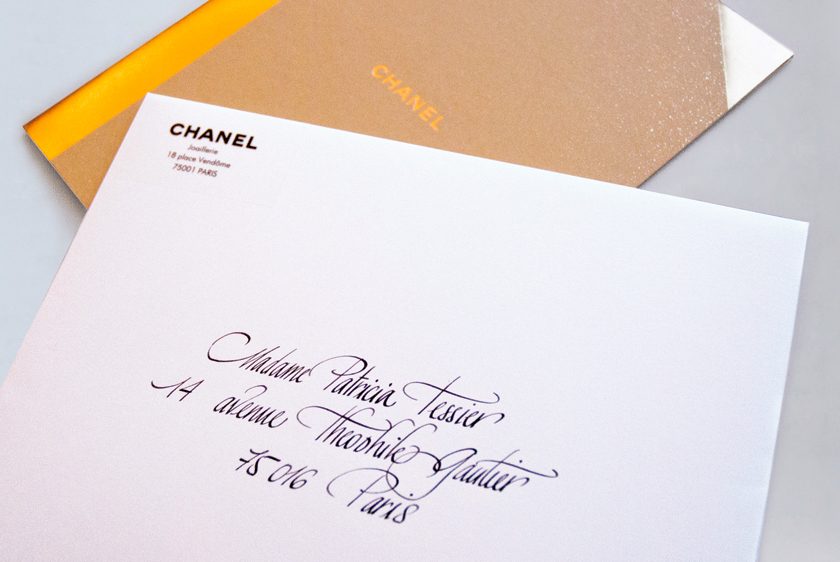 CHANEL
CHANEL
Joaillerie
18 place Vendôme
75001 PARIS
Madame Patricia Tessier
14 avenue Théophile Gautier
75016 Paris